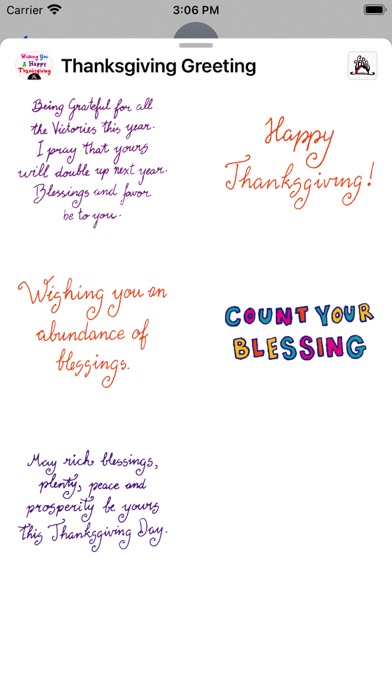 Carrier 3:06 PM
Wishing You
A Happy
Thanksgiving
Thanksgiving Greeting
Being Grateful for all
the Victories this year.
I pray that yours
will double up next year.
Blessings and favor
be to you.
Happy
Thanksgiving!
Wishing you an
abundance of
blessings.
COUNT YOUR
BLESSING
May rich blessings,
plenty, peace and
prosperity be yours
this Thanksgiving Day.